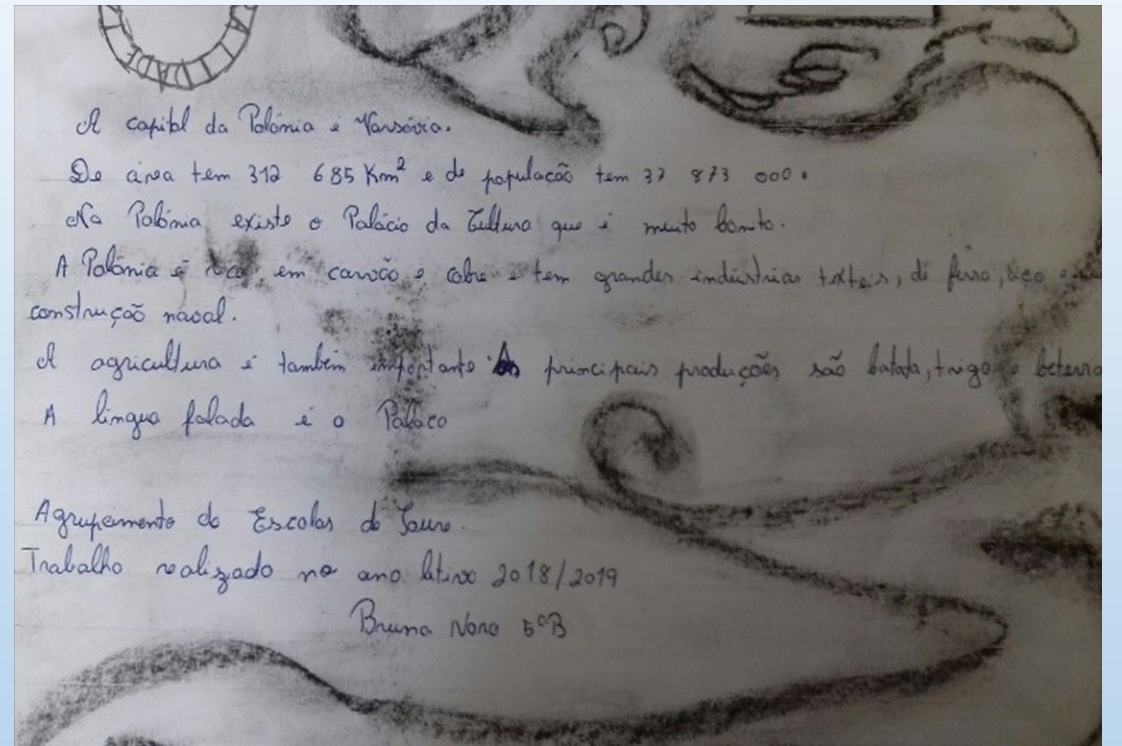 IDADE
A capital da Polónia é Varsóvia.
De área tem 312 685 Km² e de população tem 37 873 000.
Na Polónia existe o Palácio da Cultura que é muito bonito.
A Polónia é rica em carvão e cobre e tem grandes indústrias texteis, de ferro, aço e
construção naval.
A agricultura é também importante As principais produções são batata, trigo e beterra
A lingua falada é o Polaco
Agrupamento de Escolas de Soure.
Trabalho realizado no ano letivo 2018/2019
Bruna Nore 5ºB